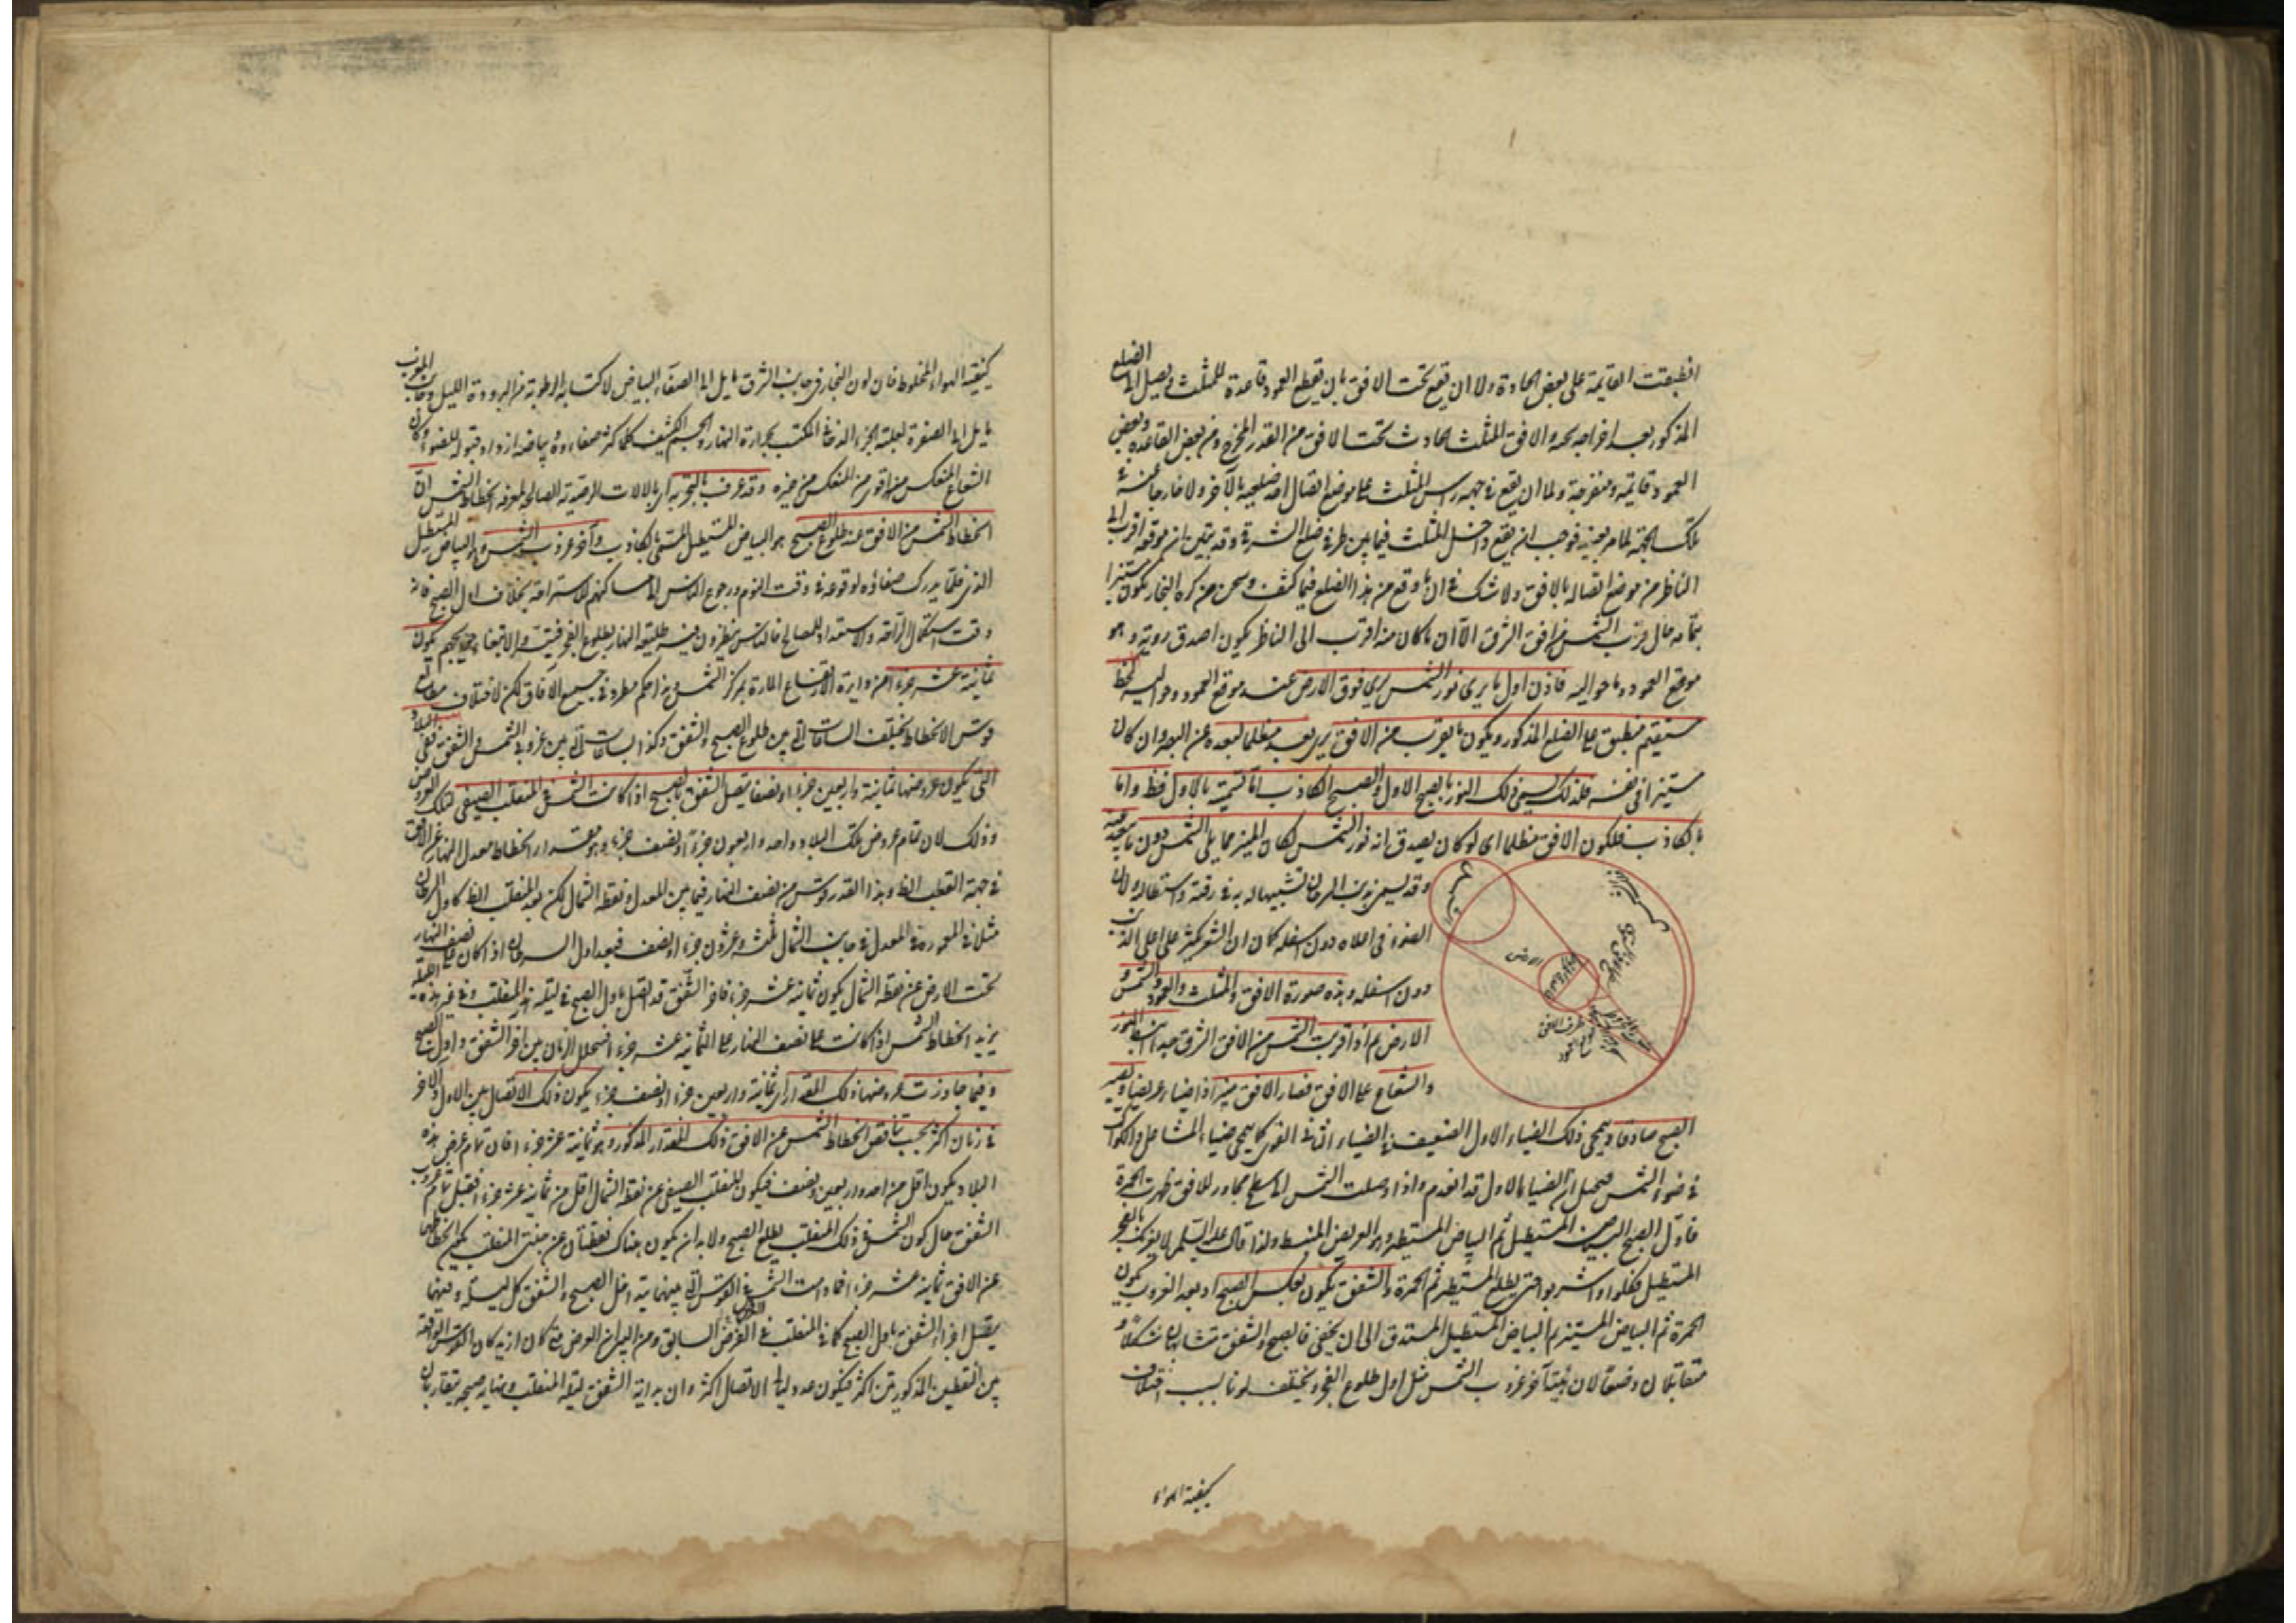 انطبقت القايمة على بعض الحادة ولا ان يقع تحت الافق بان يقطع العمود قاعدة للمثلث ثم يصل الى الضلع
المذكور بعد اخراجه يحد والافق المثلث الحادث تحت الافق من القدر المخرج ومن بعض القاعدة وبعض
العمود قايمة ومنفرجة ولما ان يقع في جهة راس المثلث على موضع اتصال احد ضلعيه بالآخر ولا خارجا عنه في
تلك الجهة لما مر بعينه فوجب ان يقع داخل المثلث فيما بين طرفي ضلع الشرقي وقد تبين ان موقعه اقرب الى
الناظر من موضع اتصاله بالافق ولا شك في ان ما وقع من هذا الضلع فيما كثف وسحن من كرة البخار يكون مستنيرا
بتمامه حال قرب الشمس من افق الشرق الا ان ما كان منه اقرب الى الناظر يكون اصدق روية وهو
موقع العمود وما حواليه فاذن اول ما يرى نور الشمس يرى فوق الارض عند موقع العمود وحواليه كخط
مستقيم منطبق على الضلع المذكور ويكون ما يقرب من الافق يرى بعد مظلما لبعده عن البصر وان كان
مستنيرا في نفسه فلذلك يسمى ذلك النور بالصبح الاول والصبح الكاذب اما تسميته بالاول فظ واما
بالكاذب فلكون الافق مظلما اى لو كان يصدق انه نور الشمس لكان المنير مما يلى الشمس دون ما يبعد عنه
وقد يسمى بذنب السرحان تشبيها له به في دقته واستطالته ولان
الضوء في اعلاه دون اسفله كما ان الشعر يكثر على اعلى الذنب
دون اسفله وهذه صورة الافق والمثلث والعمود والشمس و
الارض ثم اذا قربت الشمس من الافق الشرقي جدا انبسط النور
والشعاع على الافق فصار الافق منيرا ضياء عريضا ويصير
الارض
طرف الافق
الصبح صادقا ويمحى ذلك الضياء الاول الضعيف في الضياء الثاني القوى كما يمحى ضياء المشاعل والكواكب
في ضوء الشمس فيتخيل ان الضياء الاول قد انعدم واذا وصلت الشمس الى سطح مجاور للافق ظهرت الحمرة
فاول الصبح البياض المستطيل ثم البياض المستطير وهو العريض المنبسط ولذا قال عليه السلام لا يغرنكم الفجر
المستطيل فكلوا واشربوا حتى يطلع المستطير ثم الحمرة والشفق يكون بعكس الصبح اذ بعد الغروب يكون
الحمرة ثم البياض المستنير ثم البياض المستطيل المستدق الى ان يخفى فالصبح والشفق متشابهان شكلا و
متقابلان وضعا لان هيئة آخر غروب الشمس مثل اول طلوع الفجر ويختلف لونا بسبب اختلاف
كيفية الهواء
كيفية الهواء المخلوط فان لون البخار في جانب الشرق مايل الى الصفاء والبياض لاكتسابه الرطوبة من برودة الليل وفي جانب المغرب
مايل الى الصفرة لغلبة الجزء الدخاني المكتسب بحرارة النهار والجسم الكثيف كلما كثر صفاءه وبياضه ازداد قبوله للضوء وكان
الشعاع المنعكس منه اقوى من المنعكس من غيره وقد عرف بالتجربة اى بالآلات الرصدية الصالحة لمعرفة انحطاط الشمس ان
انحطاط الشمس من الافق عند طلوع الصبح هو البياض المستطيل المسمى بالكاذب وآخر غروب الشفق وهو البياض المستطيل
الذى قلما يدرك صفاؤه لوقوعه في وقت النوم ورجوع الناس الى مساكنهم للاستراحة بخلاف اول الصبح فانه
وقت استكمال الراحة والاستعداد للمصالح فالناس ينتظرون فيه طليعة النهار بطلوع الفجر
ثمانية عشر جزءا من دايرة الارتفاع المارة بمركز الشمس وهذا حكم مطرد في جميع الآفاق لكن لاختلاف مطالع
قوس الانحطاط تختلف الساعات التى بين طلوع الصبح والشمس وكذا الساعات التى بين غروب الشمس والشفق ففى البلاد
التى يكون عروضها ثمانية واربعين جزءا ونصفا يتصل الشفق بالصبح اذا كانت الشمس في المنقلب الصيفى لتلك العروض
وذلك لان تمام عروض تلك البلاد واحد واربعون جزءا ونصف جزء وهو مقدار انحطاط معدل النهار عن الافق
في جهة القطب الظ وهذا القدر قوس من نصف النهار فيما بين المعدل ونقطة الشمال لكن بعد المنقلب الظ كاول السرطان
مثلا في المعمورة عن المعدل في جانب الشمال ثلث وعشرون جزءا ونصف فبعد اول السرطان اذا كان على نصف النهار
تحت الارض عن نقطة الشمال يكون ثمانية عشر جزءا فآخر الشفق قد اتصل باول الصبح في ليلة هذا المنقلب وفي غير هذه الليلة
يزيد انحطاط الشمس اذا كانت على نصف النهار على الثمانية عشر جزءا فيتخلل الزمان بين آخر الشفق واول الصبح
وفيما جاوزت عروضها ذلك المقدار اى ثمانية واربعين جزءا ونصف جزء يكون ذلك الاتصال بين الاول والآخر
في زمان اكثر بحسب تناقص انحطاط الشمس عن الافق ذلك المقدار المذكور وهو ثمانية عشر جزءا فان تمام عرض هذه
البلاد يكون اقل من احد واربعين ونصف فيكون للمنقلب الصيفى عن نقطة الشمال اقل من ثمانية عشر جزءا فقبل تمام غروب
الشفق حال كون الشمس في ذلك المنقلب يطلع الصبح ولا بد ان يكون هناك نقطتان عن جنبتى المنقلب يكون انحطاطهما
عن الافق ثمانية عشر جزءا فما دامت الشمس في القوس التى بينهما يتداخل الصبح والشفق كل ليلة وفيهما
يتصل آخر الشفق باول الصبح كما في المنقلب في العرض السابق ومن البين ان العرض متى كان ازيد كان القوس الواقعة
بين النقطتين المذكورتين اكثر فيكون عدد ليالى الاتصال اكثر وان بداية الشفق ليلة المنقلب ونهاية صبحه يتقاربان